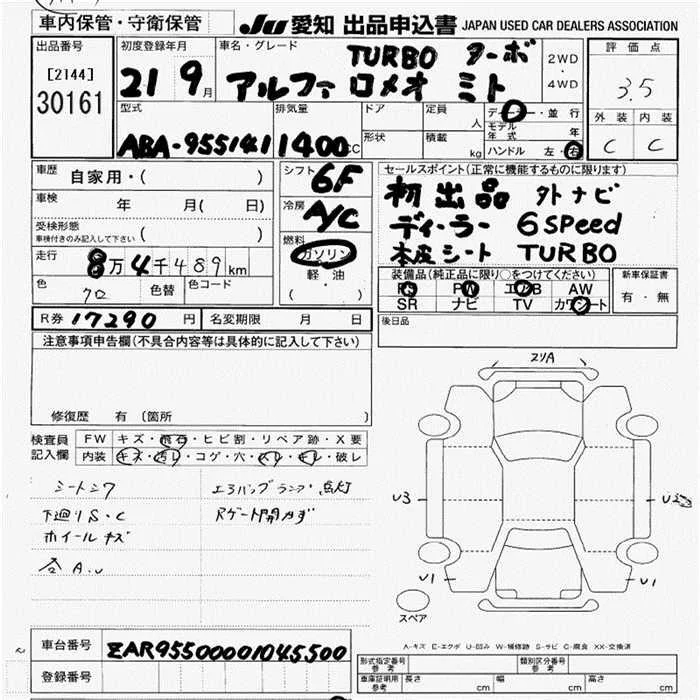 車内保管・守衛保管
JU 愛知 出品申込書 JAPAN USED CAR DEALERS ASSOCIATION
出品番号
[2144]
30161
初度登録年月
21 9月
車名・グレード
TURBO ターボ
アルファ ロメオ ミト
2WD
・
4WD
評価点
3.5
外装 内装
C C
型式
ABA-955141
排気量
1400cc
ドア
形状
定員 人
積載 kg
ディーラー・並行
モデル年式 年
ハンドル 左・右
車歴
自家用・( )
車検 年 月( 日)
受検形態
車検付きのみ記入して下さい ( )
走行
8万4千489km
色 クロ 色替 色コード
シフト
6F
冷房
A/C
燃料
ガソリン
軽・油
( ・ )
セールスポイント(正常に機能するものに限ります)
初出品 外ナビ
ディーラー 6speed
本皮シート TURBO
装備品(純正品に限り○をつけてください)
PS PW エアB AW
SR ナビ TV カワシート
新車保証書
有・無
R券 17290 円 名変期限 月 日
後日品
注意事項申告欄(不具合内容等は具体的に記入して下さい)
修復歴 有 〔箇所
検査員
記入欄
FW キズ・飛石・ヒビ割・リペア跡・X要
内装 キズ・汚レ・コゲ・穴・スレ・キレ・破レ
シートシワ
エアバッグランプ点灯
下廻りS・C
Rゲート開カず
ホイールキズ
合A.U
スリA
U3
U1
U1
スペア
A-キズ E-エクボ U-凹み W-補修跡 S-サビ C-腐食 XX-交換済
車台番号 ZAR95500001045500
登録番号
形式指定番号
参考
類別区分番号
参考
車庫証明用
参考
長さ cm 幅 cm 高さ cm